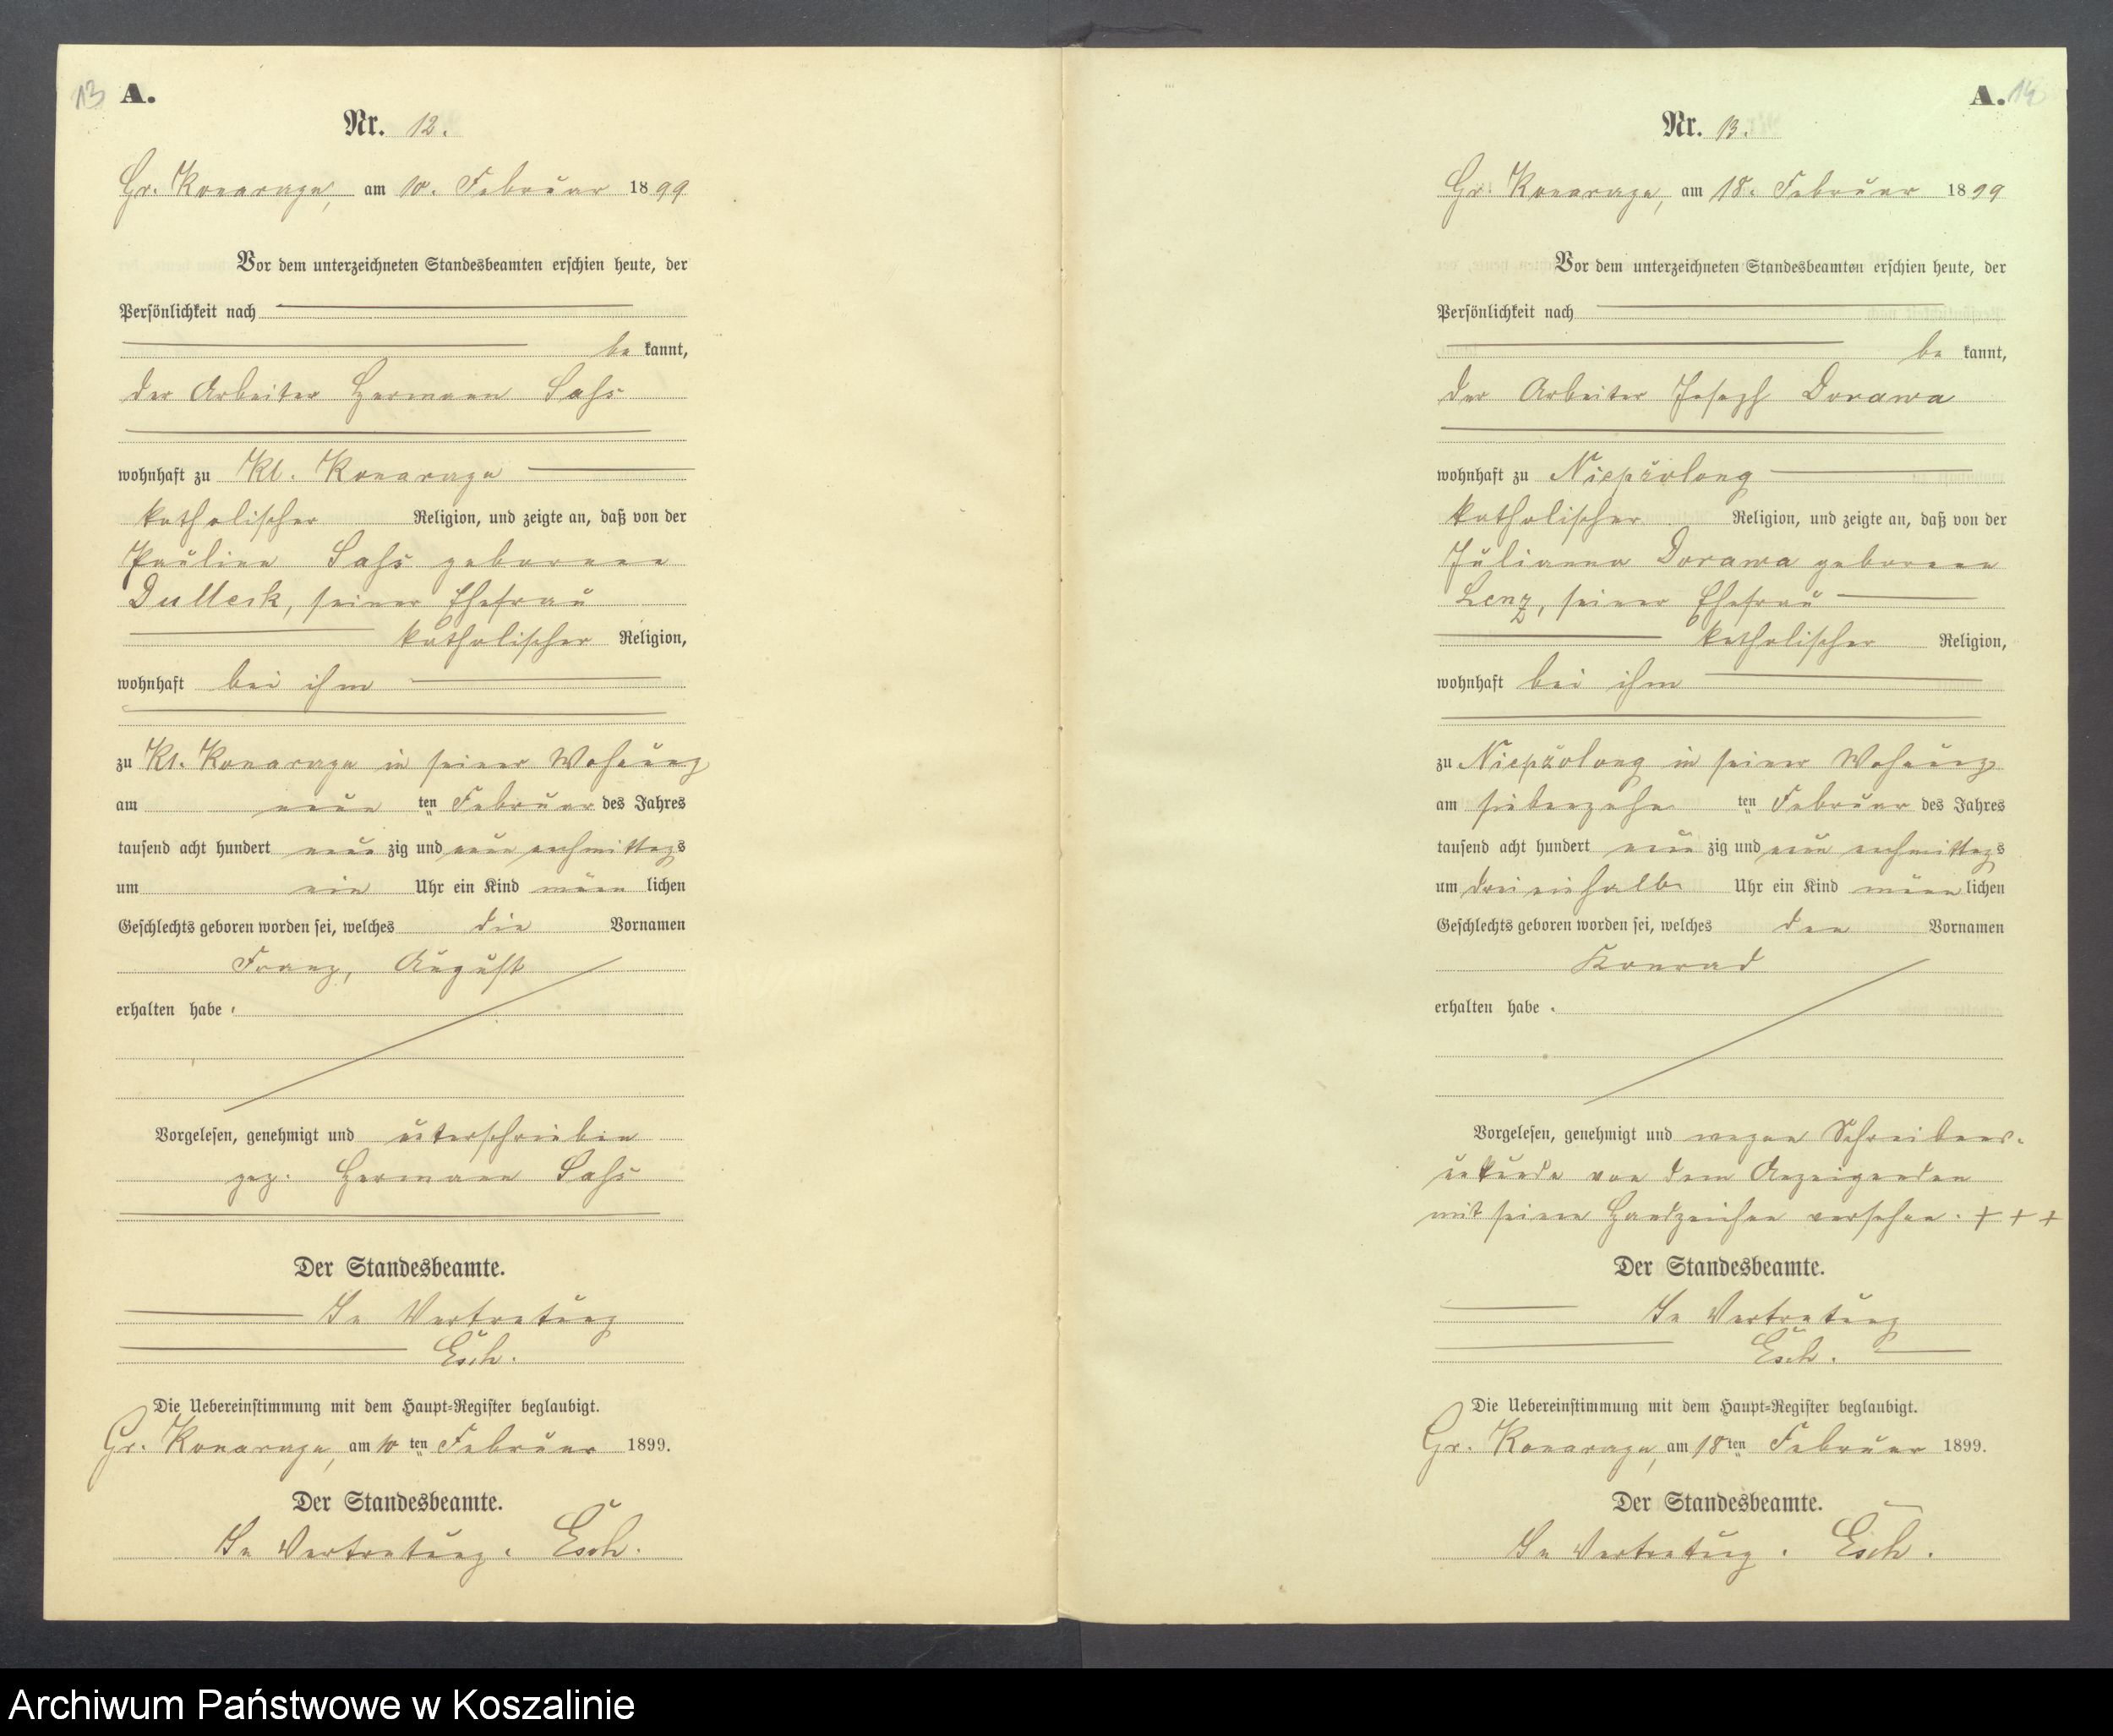 13 A.
Nr. 12.
Gr. Konarzyn, am 10. Februar 1899
Vor dem unterzeichneten Standesbeamten erschien heute, der
Persönlichkeit nach
be kannt,
der Arbeiter Hermann
wohnhaft zu Kl. Konarzyn
katholischer Religion, und zeigte an, daß von der
Pauline geborenen
Dulleck, seiner Ehefrau
katholischer Religion,
wohnhaft bei ihm
zu Kl. Konarzyn in seiner Wohnung
am neun ten Februar des Jahres
tausend acht hundert neun zig und neun nachmittags
um ein Uhr ein Kind männ lichen
Geschlechts geboren worden sei, welches die Vornamen
Franz, August
erhalten habe.
Vorgelesen, genehmigt und unterschrieben
gez. Hermann
Der Standesbeamte.
In Vertretung
Esch.
Die Uebereinstimmung mit dem Haupt-Register beglaubigt.
Gr. Konarzyn, am 10 ten Februar 1899.
Der Standesbeamte.
In Vertretung. Esch.
A. 14
Nr. 13.
Gr. Konarzyn, am 18. Februar 1899
Vor dem unterzeichneten Standesbeamten erschien heute, der
Persönlichkeit nach
be kannt,
der Arbeiter Joseph Dorawa
wohnhaft zu Niepszolong
katholischer Religion, und zeigte an, daß von der
Julianna Dorawa geborenen
Lenz, seiner Ehefrau
katholischer Religion,
wohnhaft bei ihm
zu Niepszolong in seiner Wohnung
am siebenzehn ten Februar des Jahres
tausend acht hundert neun zig und neun nachmittags
um drei einhalb Uhr ein Kind männ lichen
Geschlechts geboren worden sei, welches den Vornamen
Konrad
erhalten habe.
Vorgelesen, genehmigt und wegen Schreibens-
unkunde von dem Anzeigenden
mit seinem Handzeichen versehen. + + +
Der Standesbeamte.
In Vertretung
Esch.
Die Uebereinstimmung mit dem Haupt-Register beglaubigt.
Gr. Konarzyn, am 18 ten Februar 1899.
Der Standesbeamte.
In Vertretung. Esch.
Archiwum Państwowe w Koszalinie